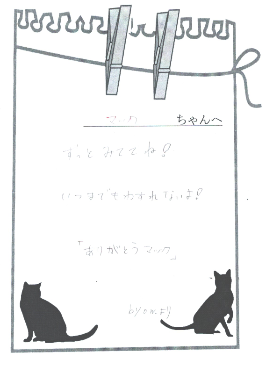 マック ちゃんへ
ずっとみててね!
いつまでもわすれないよ!
「ありがとうマック」
より